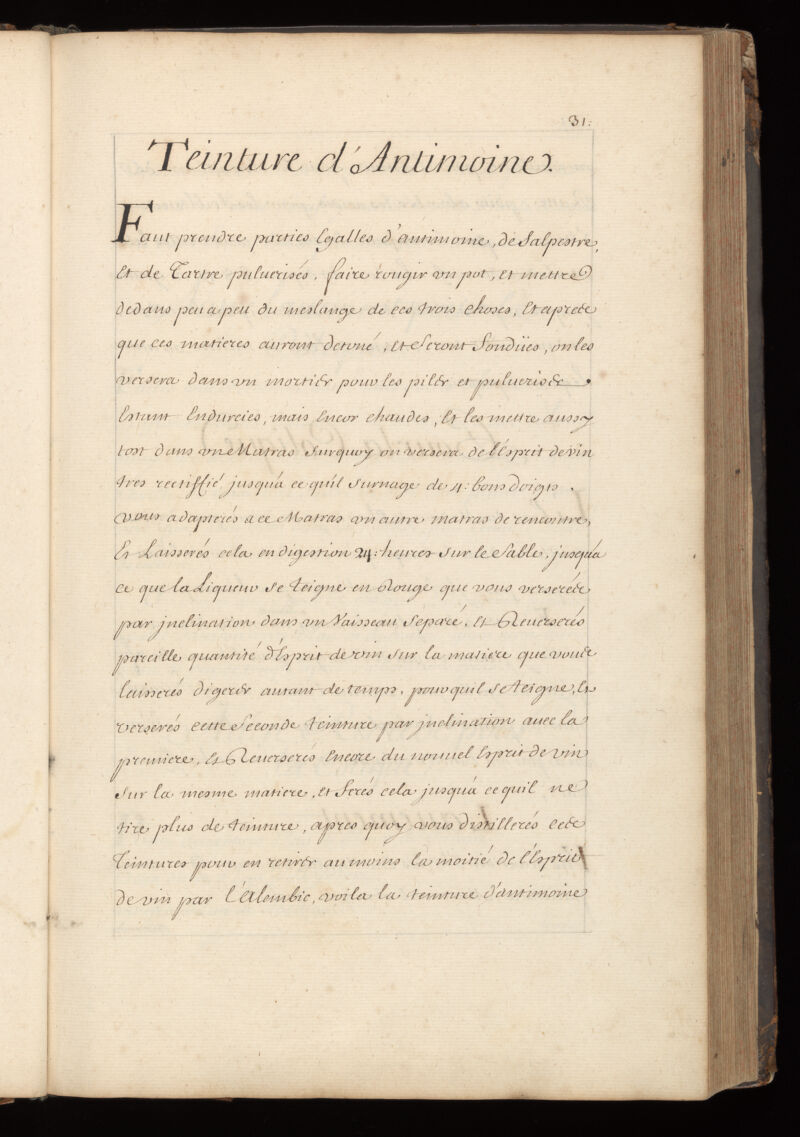 31:
Teinture d'Antimoine.
Faut prendre parties Egalles d'antimoine, de Salpestre,
Et de Tartre puluerisés, faire rougir vn pot, et mettre
dedans peu a peu du meslange de ces trois choses, Et apres
que ces matieres auront detoné, et Seront fondües, on les
versera dans vn mortier pour les piler et pulueriser
Estant Endurcies, mais Encor chaudes, Et les mettre aussy
tost dans vn Matras surquoy on versera de l'Esprit de vin
tres rectiffié jusqu'a ce qu'il surnage de 4: bons doigts.
vous adapterés a ce Matras vn autre matras de rencontre,
Et Laisserés cela en digestion 24: heures sur le Sable, jusqu'a
ce que la Liqueur se teigne en Rouge que vous verserés
par jnclination dans vn Vaisseau Separé, Et Reuerserés
pareille quantité d'Esprit de vin sur la matiere que vous
laisserés digerer autant de temps, pour qu'il se teigne, Et
verserés cette Seconde teinture par jnclination auec la
premiere, Et Reuerserés Encore du nouuel Esprit de vin
sur la mesme matiere, Et ferés cela jusqu'a ce qu'il ne
tire plus de teinture, apres quoy vous distillerés ces
Teintures pour en retirer au moins la moitié de l'Esprit
de vin par l'Alembic, voila la teinture d'antimoine